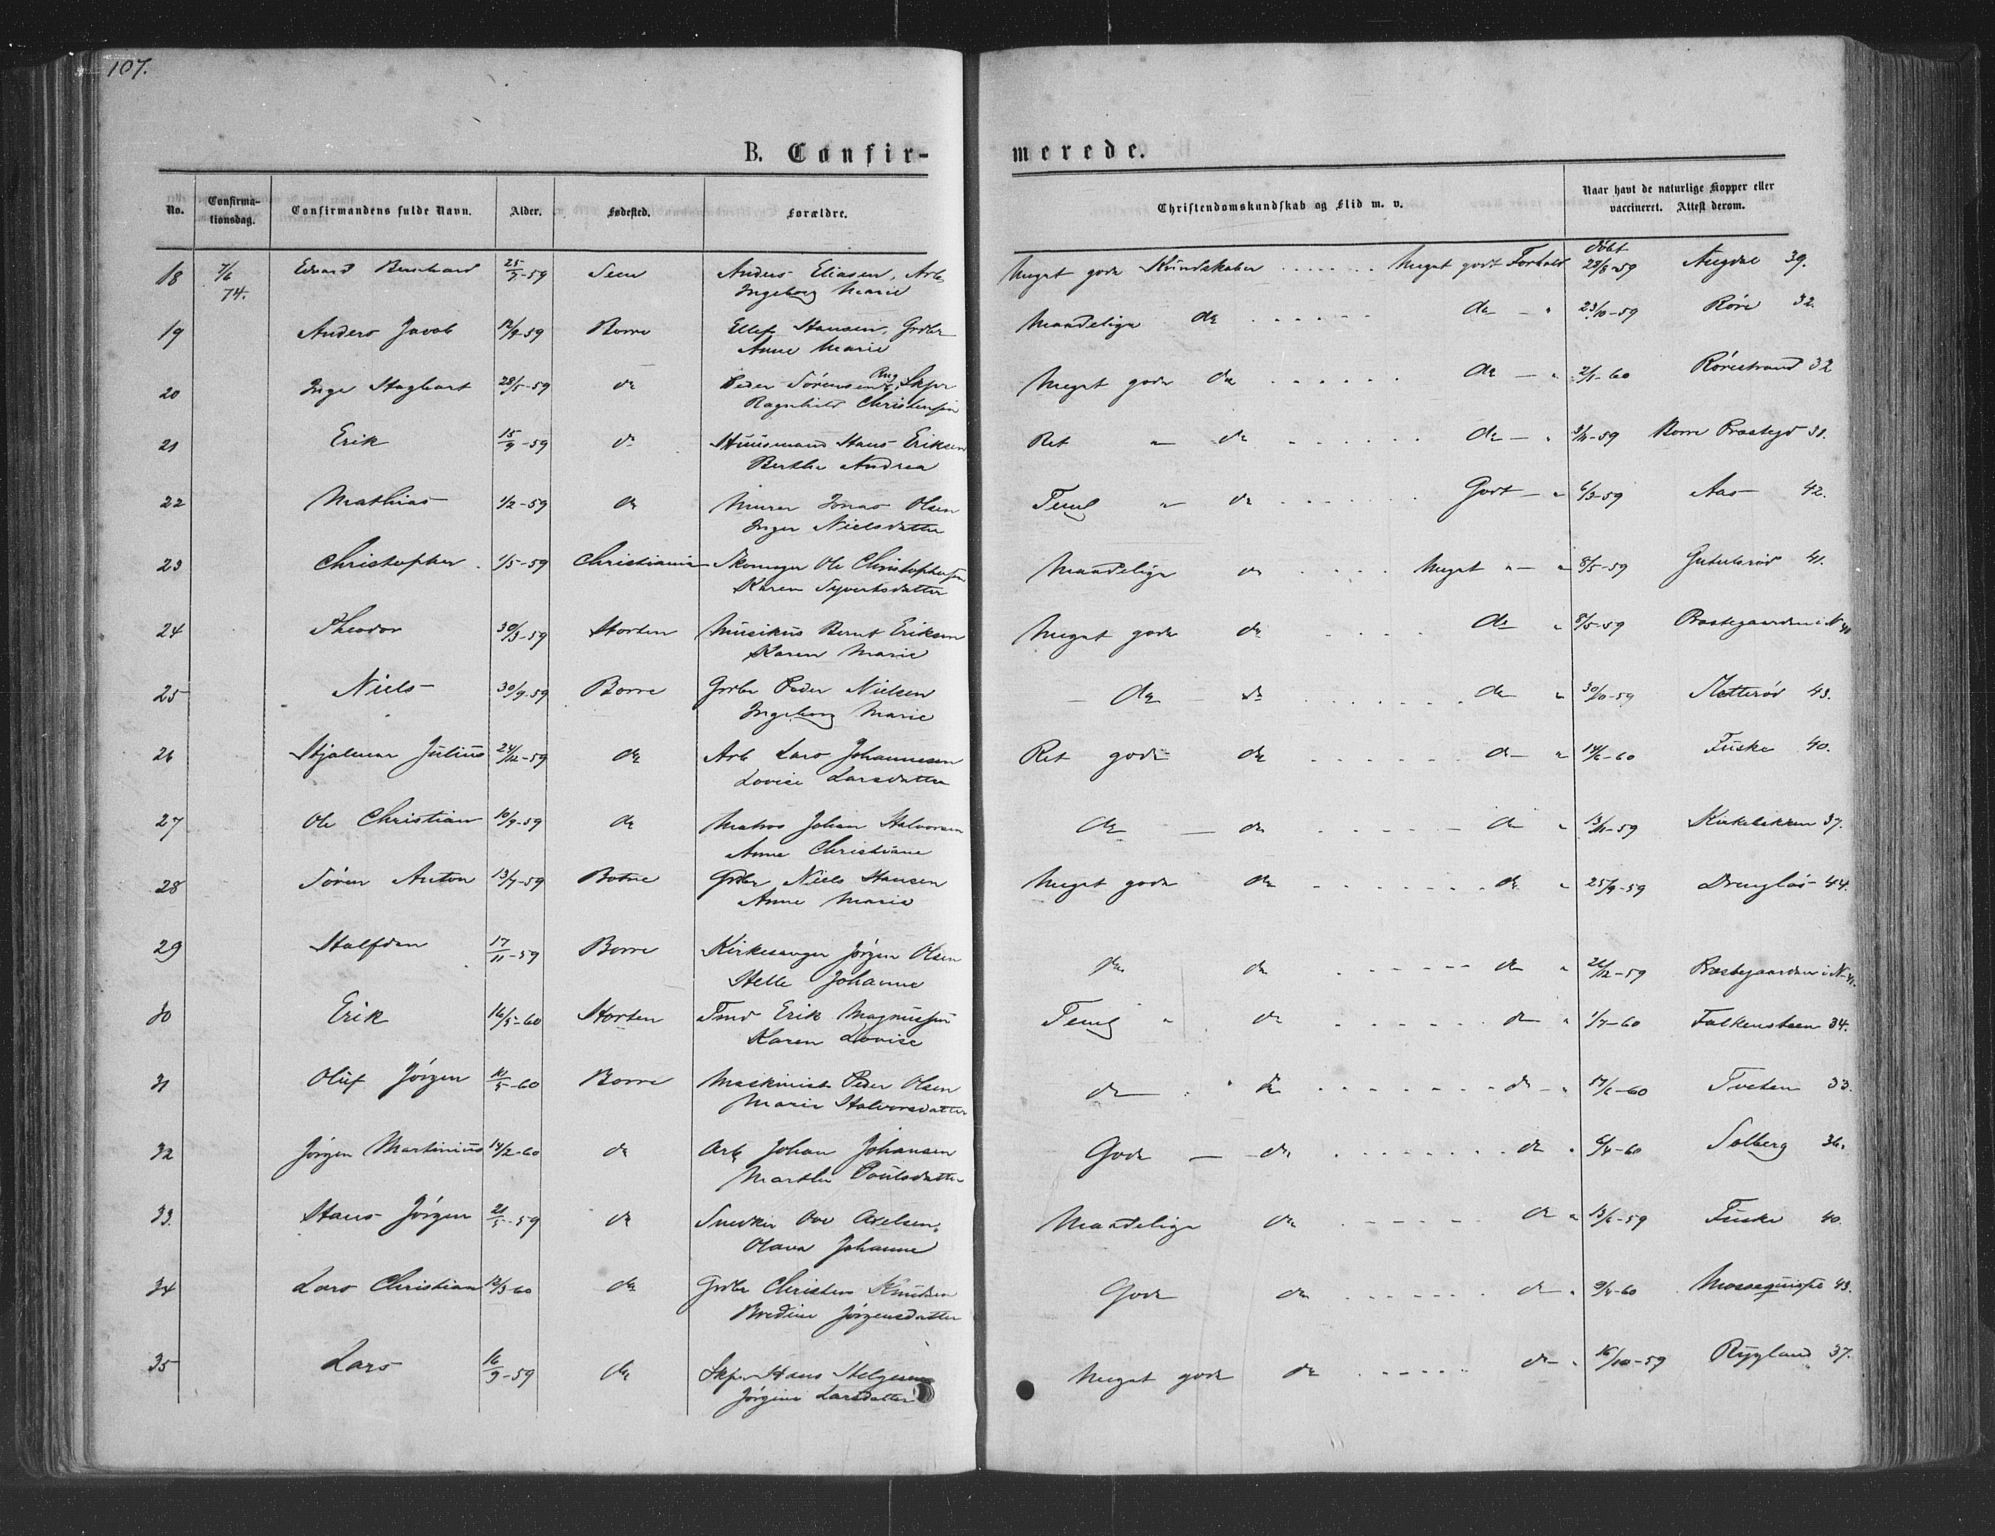 107.
B. Confir-
merede.
No.
Confirma-
tionsdag.
Confirmandens fulde Navn.
Alder.
Fødested.
Forældre.
Christendomskundskab og Flid m. v.
Naar havt de naturlige Kopper eller
vaccineret. Attest derom.
18 7/6 Edvard Bernhard 25/7-59 Anders Eliasen, Arb. Meget gode Kundskaber Meget godt Forhold døbt 28/8-59 Augdal 39.
74. Ingeborg Marie
19 Anders Jacob 12/9-59 Borre Ellef Hansen, Grdbr Maadelige do do 23/10-59 Røre 32.
Anne Marie
20 Inge Hagbart 28/5-59 do Peder Sørensen Skpr Meget gode do do 2/1-60 Rørestrand 32
Ragnhild Christensen
21 Erik 15/9-59 do Huusmand Hans Eriksen Ret " do do 3/11-59 Borre Præstegd 31.
Berthe Andrea
22 Mathias 1/2-59 do Murer Jonas Olsen Temlg " do Godt 6/3-59 Aas 42.
Inger Nielsdatter
23 Christopher 1/5-59 Christiania Skomager Ole Christophersen Maadelige do Meget " 8/5-59 41.
Karen Syvertsdatter
24 Theodor 30/3-59 Horten Musikus Bernt Eriksen Meget gode do do 8/5-59 Præstegaarden i N 41
Karen Marie
25 Niels 30/9-59 Borre Grdbr Peder Nielsen do do do 30/10-59 43.
Ingeborg Marie
26 Hjalmar Julius 24/12-59 do Arb Lars Johannesen Ret gode do do 60 Fuske 40.
Lovise Larsdatter
27 Ole Christian 10/9-59 do Matros Johan Halvorsen do do do 13/11-59 Kirkebakken 37.
Anne Christiane
28 Søren Anton 13/7-59 Botne Grdbr Niels Hansen Meget gode do do 25/9-59 44.
Anne Marie
29 Halfdan 17/11-59 Borre Kirkesanger Jørgen Olsen do do do 26/12-59 Præstegaarden i N 41.
Helle Johanne
30 Erik 16/5-60 Horten Tmd Erik Magnussen Temlg " do do 1/7-60 Falkensteen 34.
Karen Lovise
31 Oluf Jørgen 5-60 Borre Maskinist Peder Olsen do do do 17/6-60 Tveten 33.
Marie Halvorsdatter
32 Jørgen Martinius 14/2-60 do Arb Johan Johansen Gode do do 6/4-60 Solberg 36.
Marthe Poulsdatter
33. Hans Jørgen 21/5-59 do Snedker Ove Axelsen, Maadelige do do 13/6-59 Fuske 40.
Olava Johanne
34 Lars Christian 12/3 60 do Grdbr Christen Knudsen Gode do do 9/4-60 43.
Bredine Jørgensdatter
35 Lars 16/9-59 do Skpr Hans Helgesen Meget gode do do 16/10-59 Rygland 37.
Jørgine Larsdatter